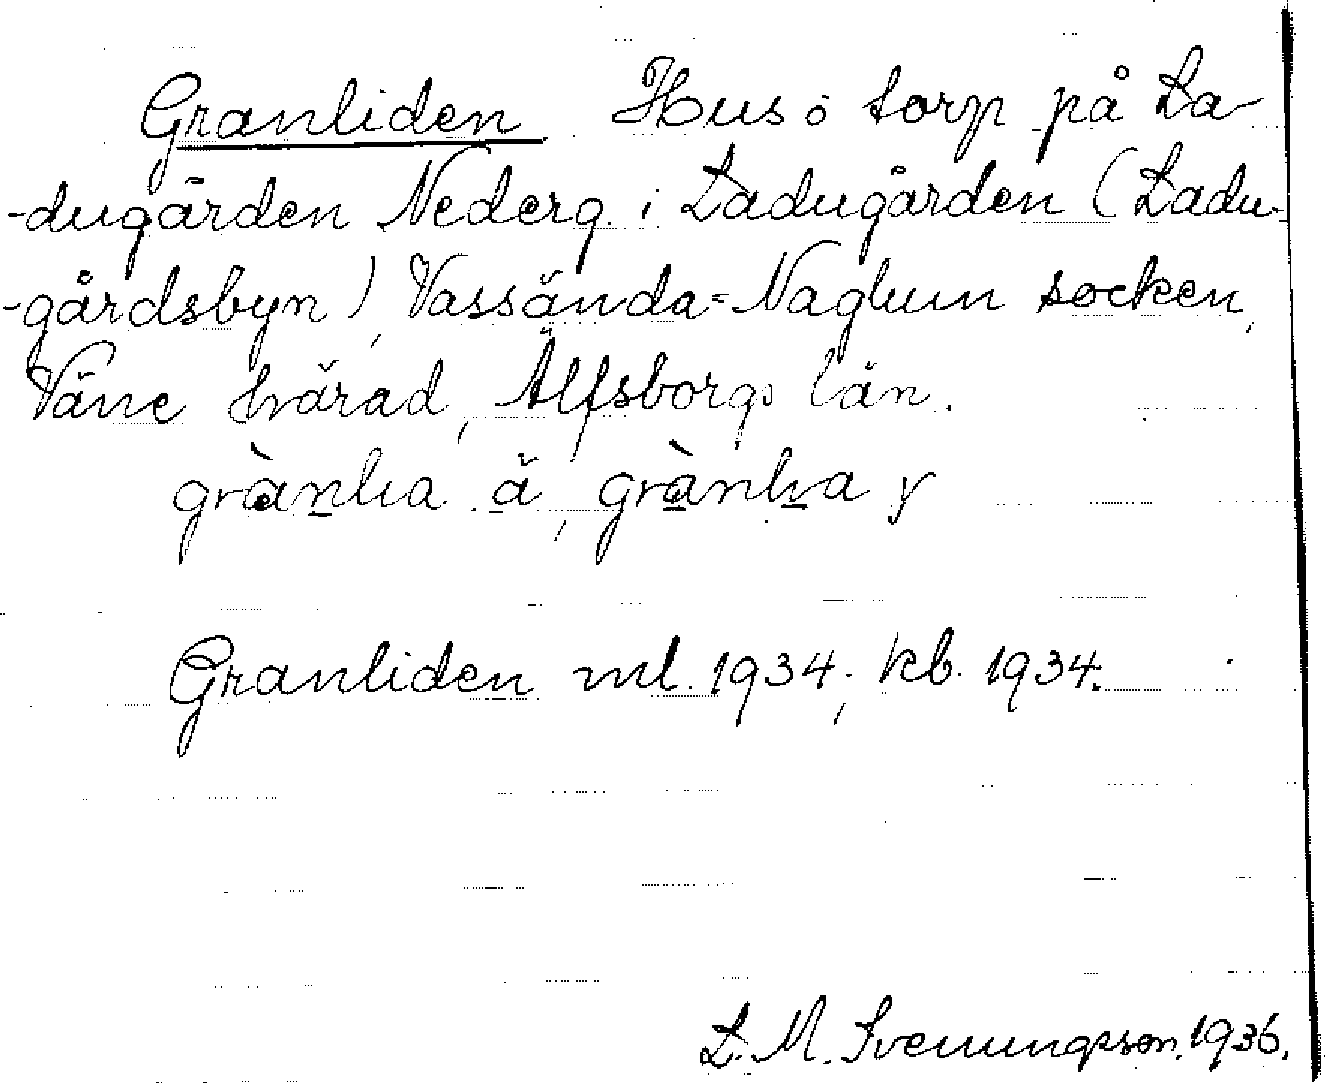 Granliden Hus o torp på La-
-dugården Nederg. i Ladugården (Ladu-
-gårdsbyn), Vassända-Naglum socken,
Väne härad, Älfsborgs län.
grànlia ä, grànlia y
Granliden ml. 1934; kb. 1934.
L. M. Svenungsson. 1936.